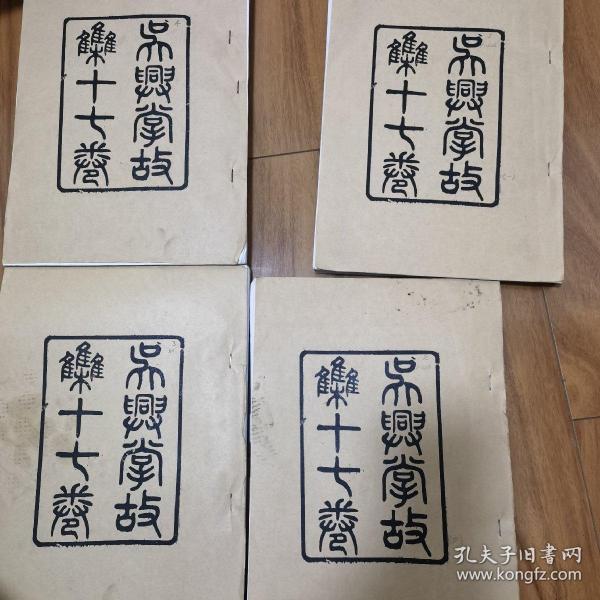 吳興掌故
集十七卷
吳興掌故
集十七卷
吳興掌故
集十七卷
吳興掌故
集十七卷
孔夫子旧書网
www.kongfz.com